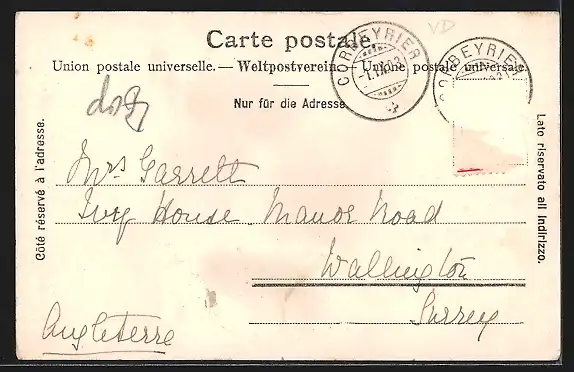 VD
Carte postale.
Union postale universelle. — Weltpostverein — Unione postale universale.
CORBEYRIER
CORBEYRIER
Nur für die Adresse
Côté réservé à l'adresse.
Lato riservato all indirizzo.
Mrs Garrett
Ivy House Manor Road
Wallington
Surrey
Angleterre